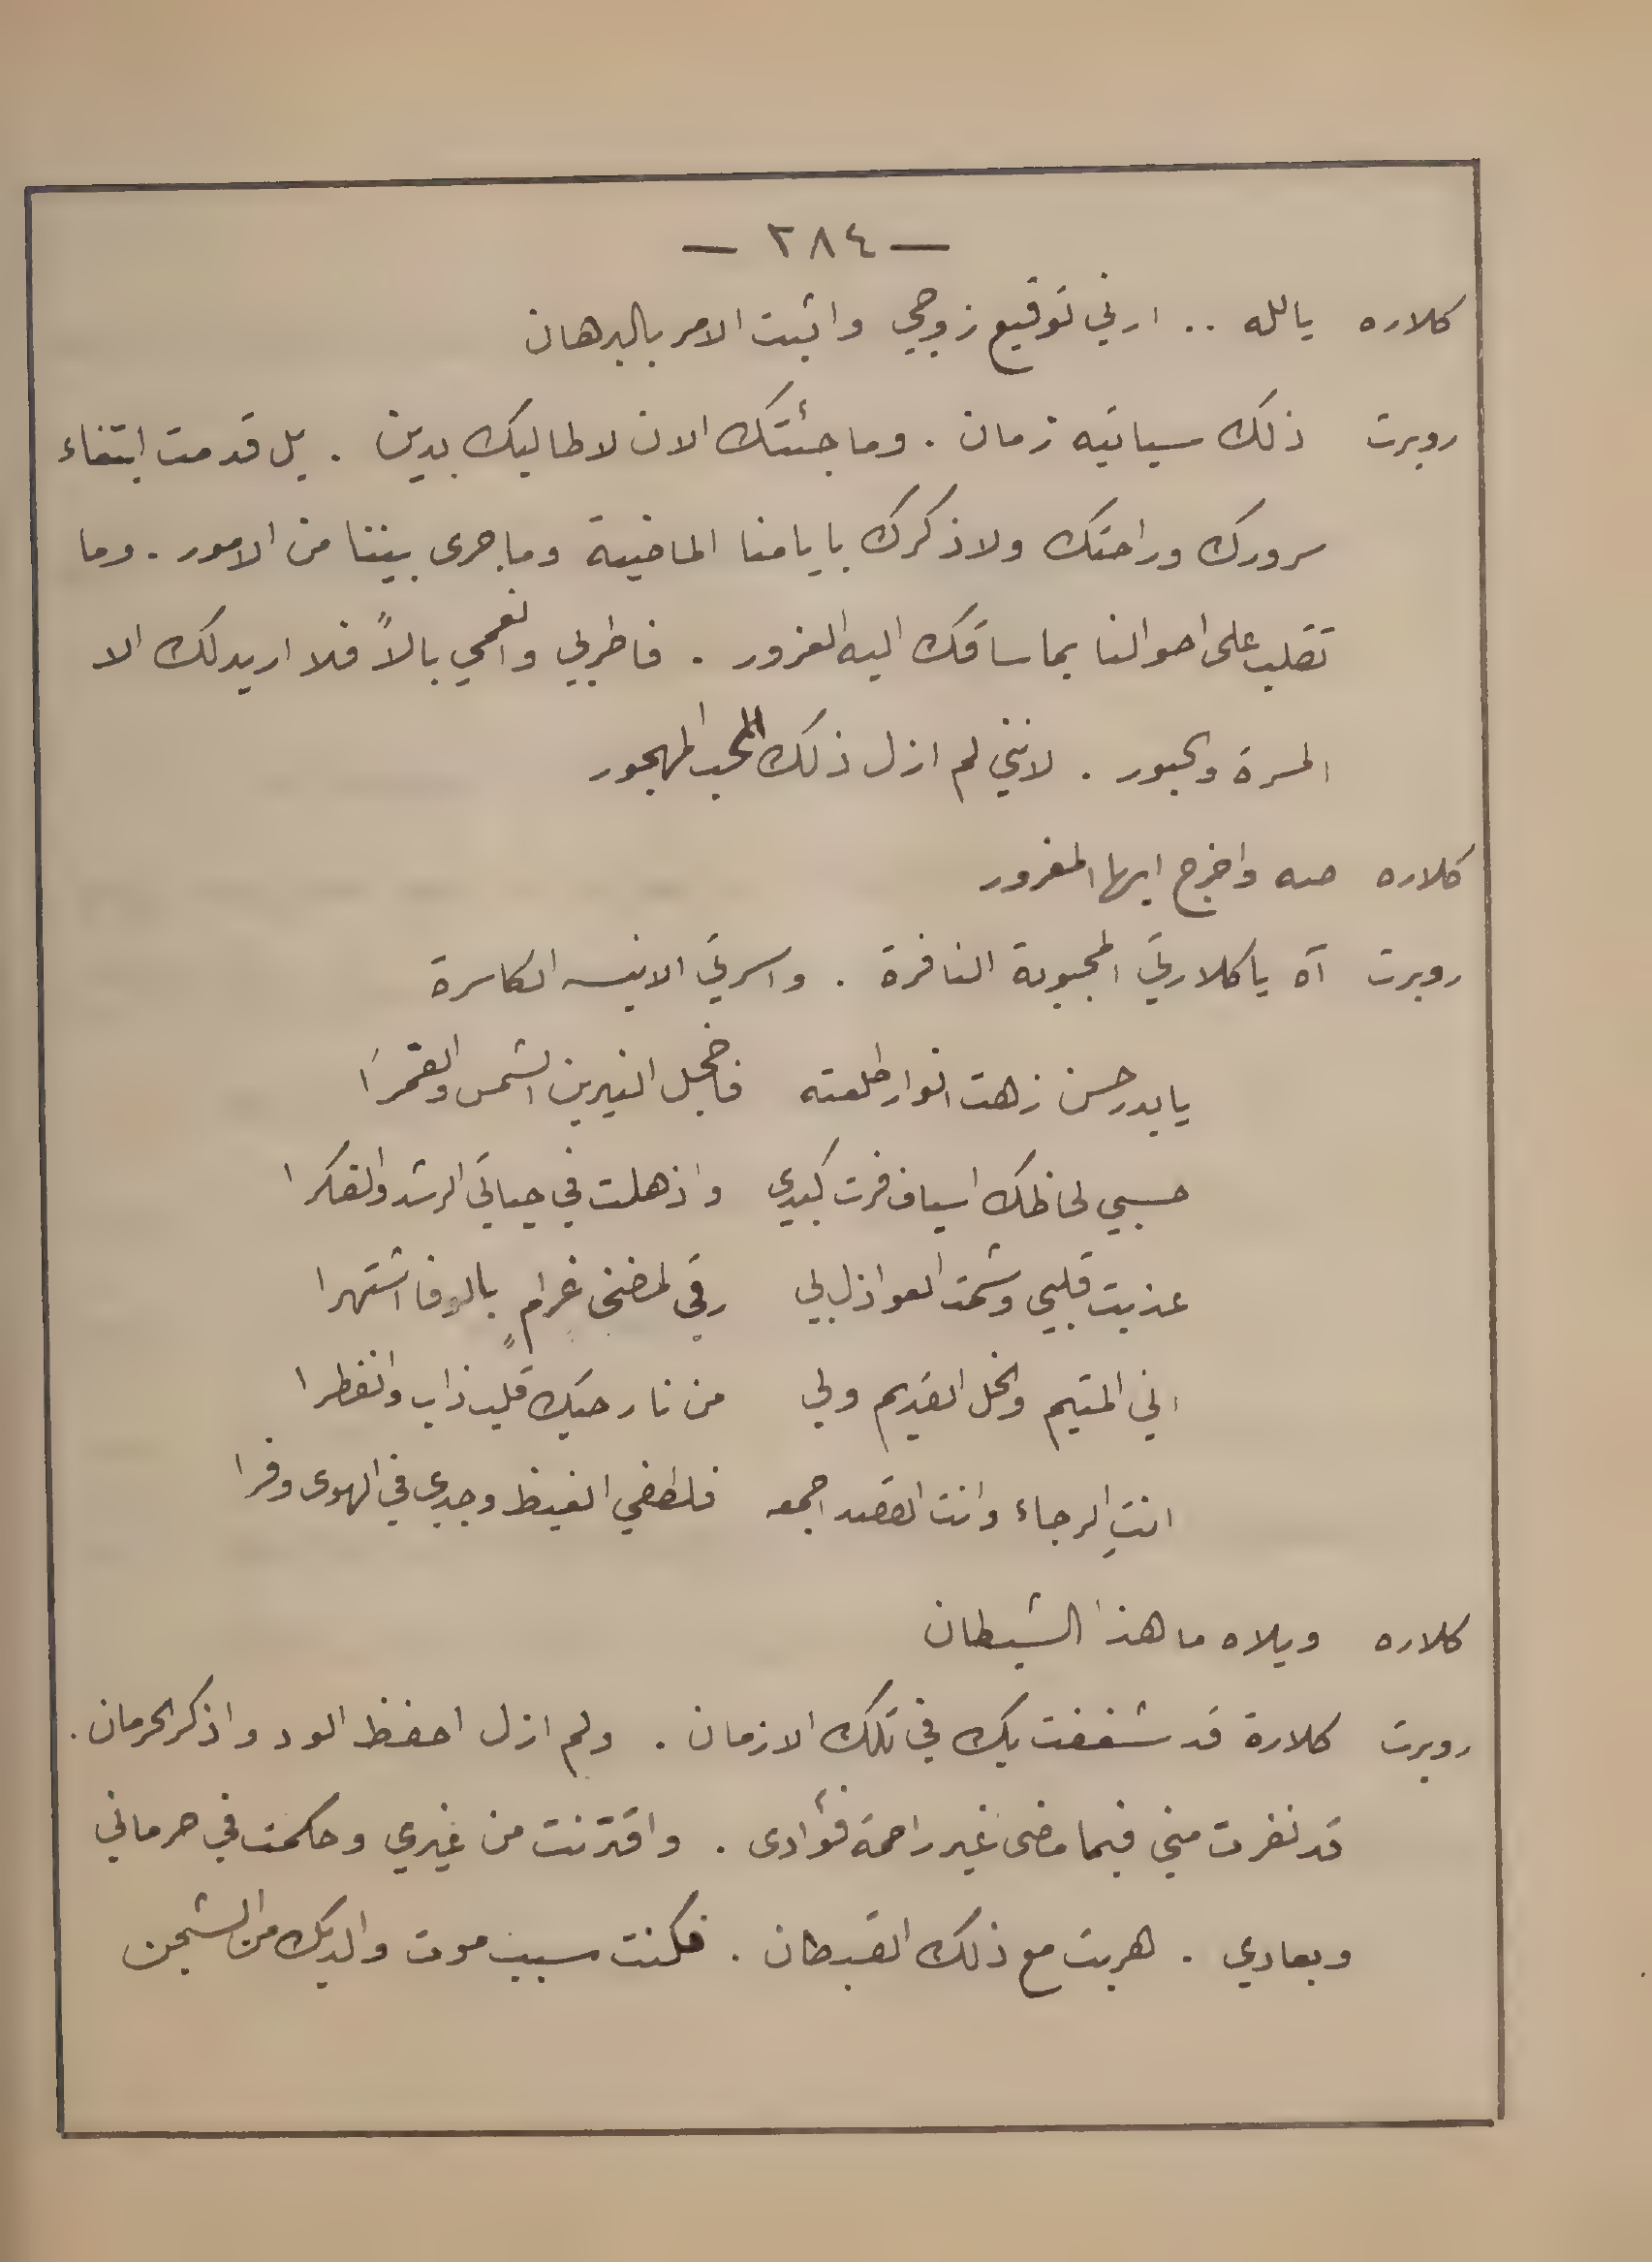 — ٢٨٤ —
كلاره يالله .. ارني توقيع زوجي واثبت الامر بالبرهان
روبرت ذلك سيأتيه زمان . وما جئتك الان لاطالبك بدين . بل قدمت ابتغاء
سرورك وراحتك ولاذكرك بايامنا الماضية وما جرى بيننا من الامور . وما
تقلب على احوالنا بما ساقك اليه الغرور . فاطربي وانعمي بالاً فلا اريد لك الا
المسرة والحبور . لانني لم ازل ذلك المحب المهجور
كلاره صه واخرج ايها المغرور
روبرت آه يا كلارتي المحبوبة النافرة . واسرتي الانيسه الكاسرة
يا بدر حسن زهت انوار طلعته فاخجل النيرين الشمس والقمرَا
حسبي لحاظك اسياف فرت كبدي واذهلت في حياتي الرشد والفكرا
عذبت قلبي وشمت العواذل بي رقي لمضنى غرامٍ بالوفا اشتهرا
اني المتيم والخل القديم ولي من نار حبك قلب ذاب وانفطرا
انتِ الرجاء وانت القصد اجمعه فلطفي الغيظ وجدي في الهوى وفرا
كلاره ويلاه ما هذا الشيطان
روبرت كلارة قد شغفت بك في تلك الازمان . ولم ازل احفظ الود واذكر الحرمان .
قد نفرت مني فيما مضى غير راحمة فؤادى . واقترنت من غيري وحكمت في حرماني
وبعادي . هربت مع ذلك القبطان . فكنت سبب موت والديك من الشجن